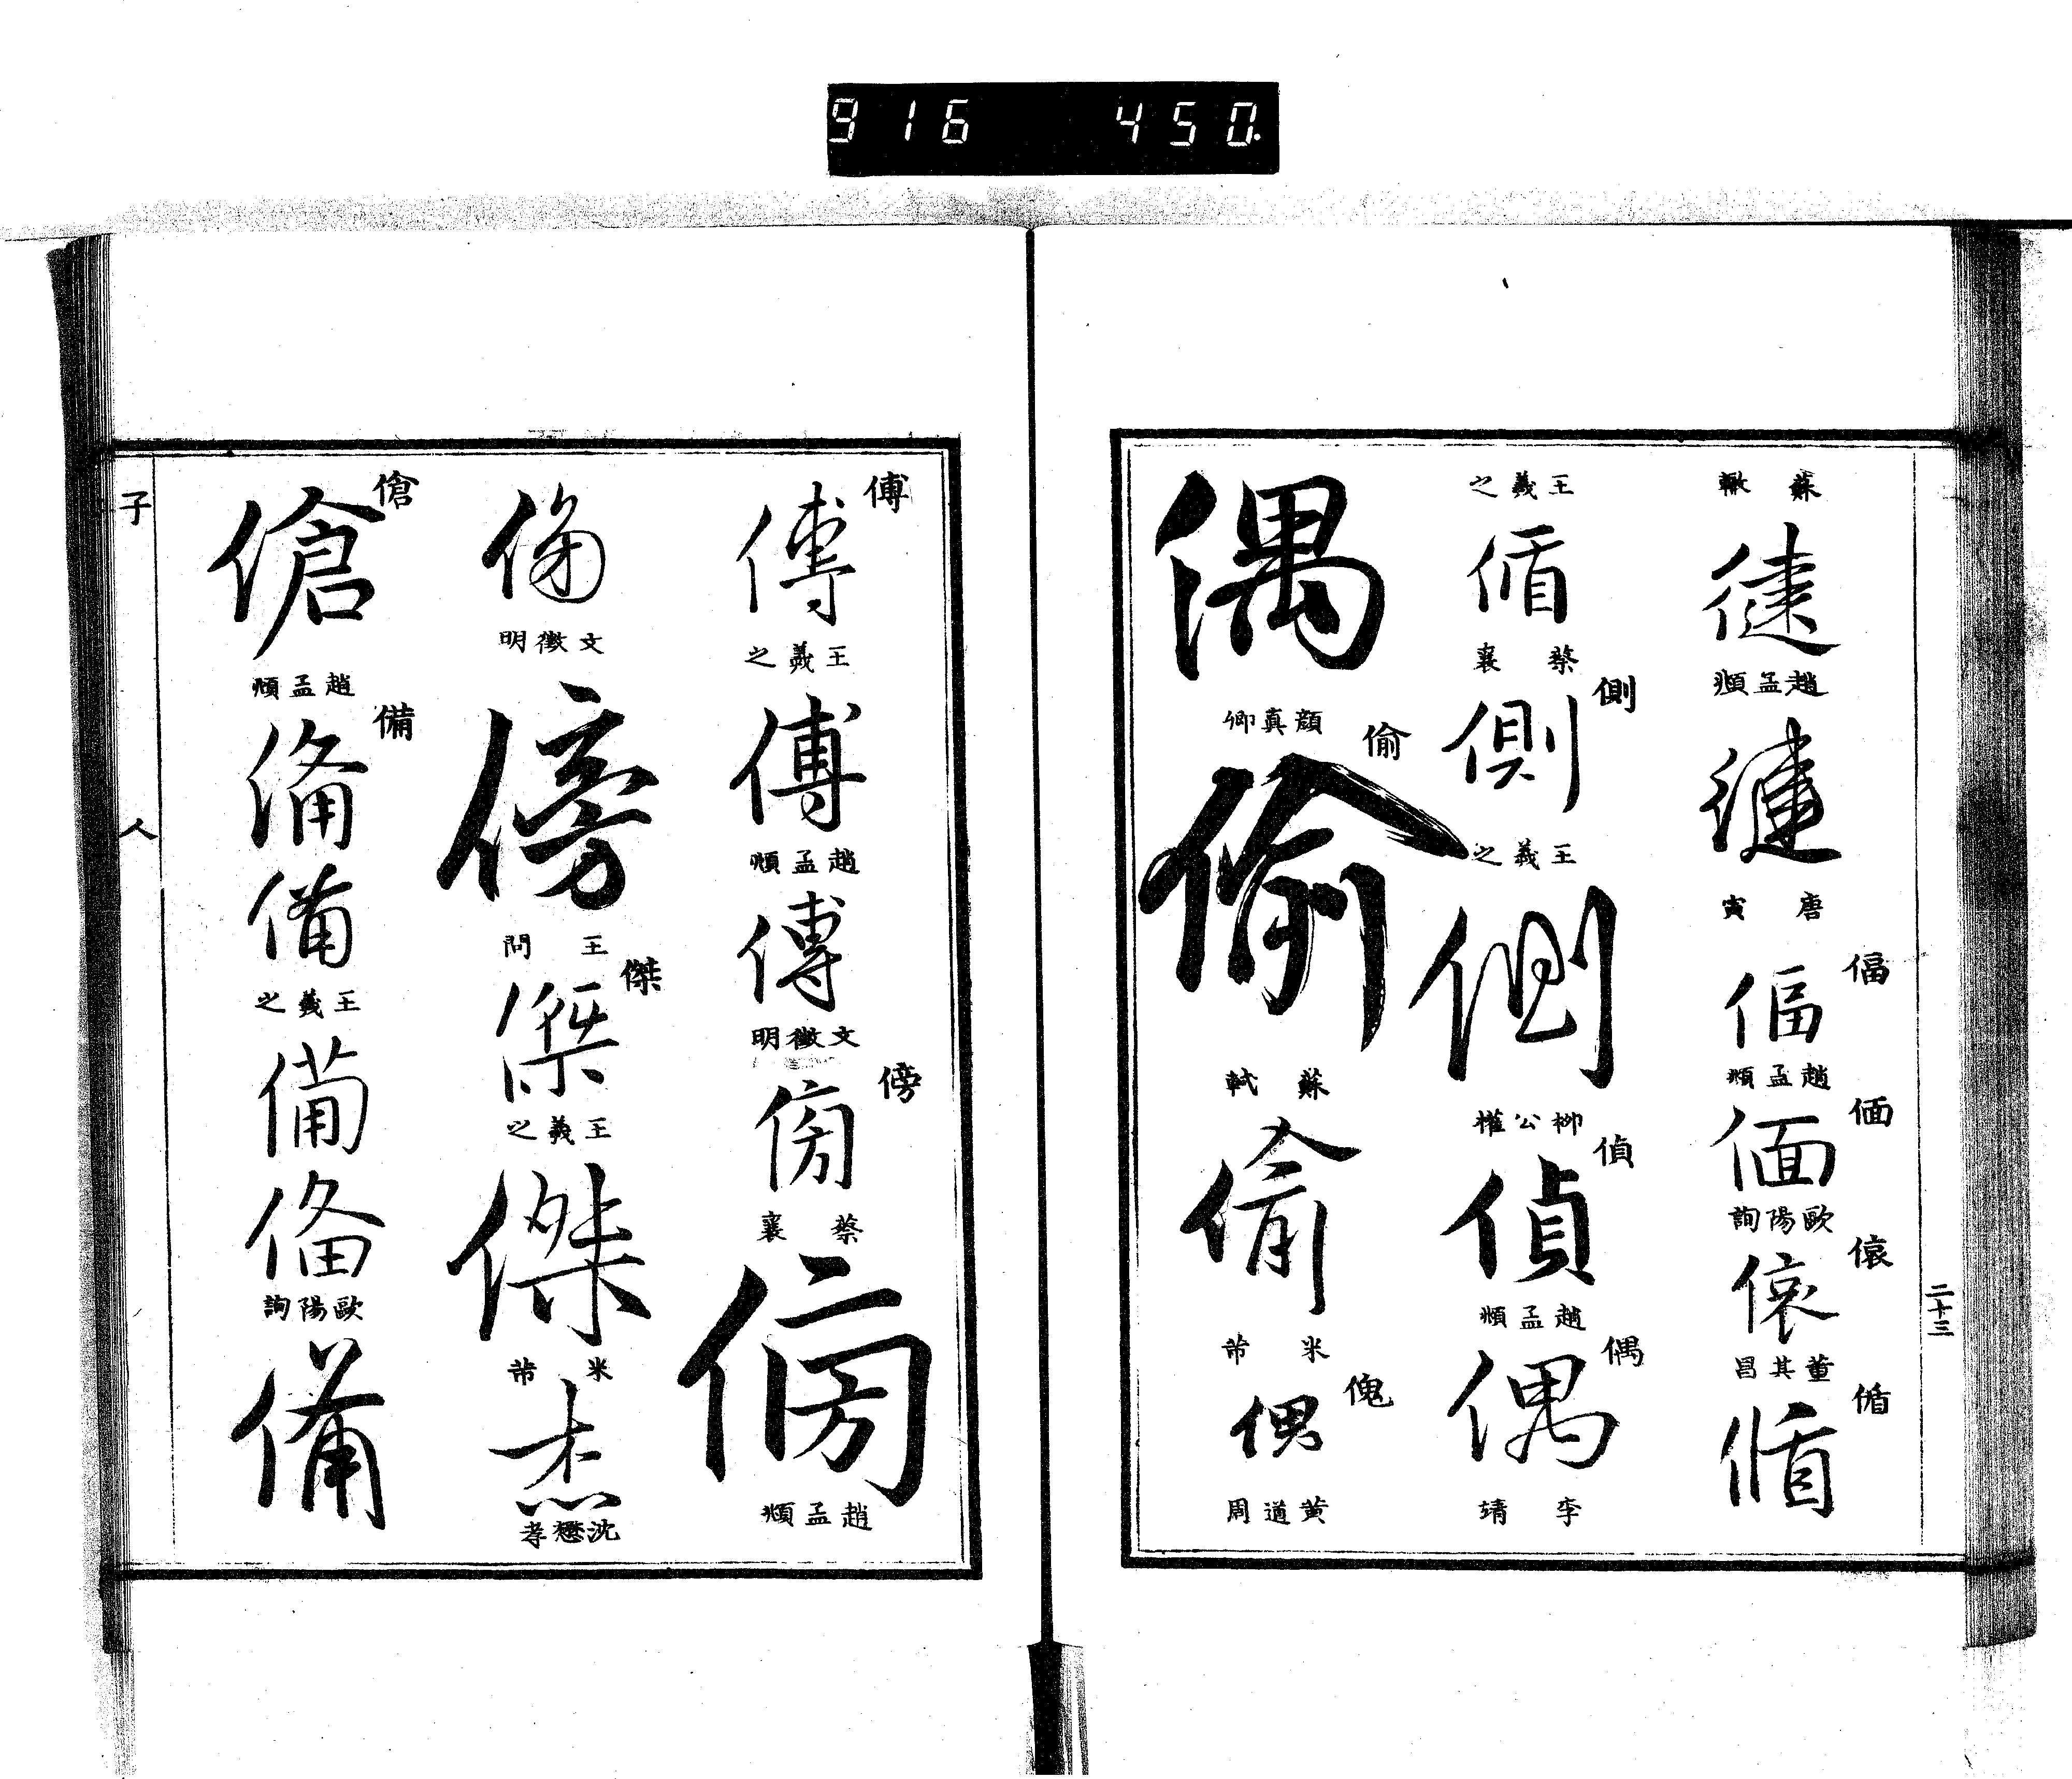 916 450
二十三
蘇轍
健
趙孟頫
健
唐寅
偪
偪
趙孟頫
偭
偭
歐陽詢
偯
偯
董其昌
偱
偱
王羲之
偱
蔡襄
側
側
王羲之
側
柳公權
偵
偵
趙孟頫
偶
偶
李靖
偶
顏真卿
偷
偷
蘇軾
偷
米芾
傀
黄道周
傅
傅
王羲之
傅
趙孟頫
傅
文徵明
傍
傍
蔡襄
傍
趙孟頫
傍
文徵明
傍
王問
傑
傑
王羲之
傑
米芾
杰
沈懋孝
傖
傖
趙孟頫
備
備
備
王羲之
備
備
歐陽詢
備
子 人